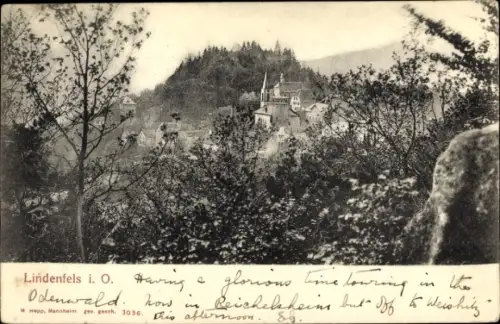 Lindenfels i. O.
Having a glorious time touring in the
Odenwald. Now in Reichelsheim but off to
this afternoon.
Hepp, Mannheim ges. gesch. 3036.